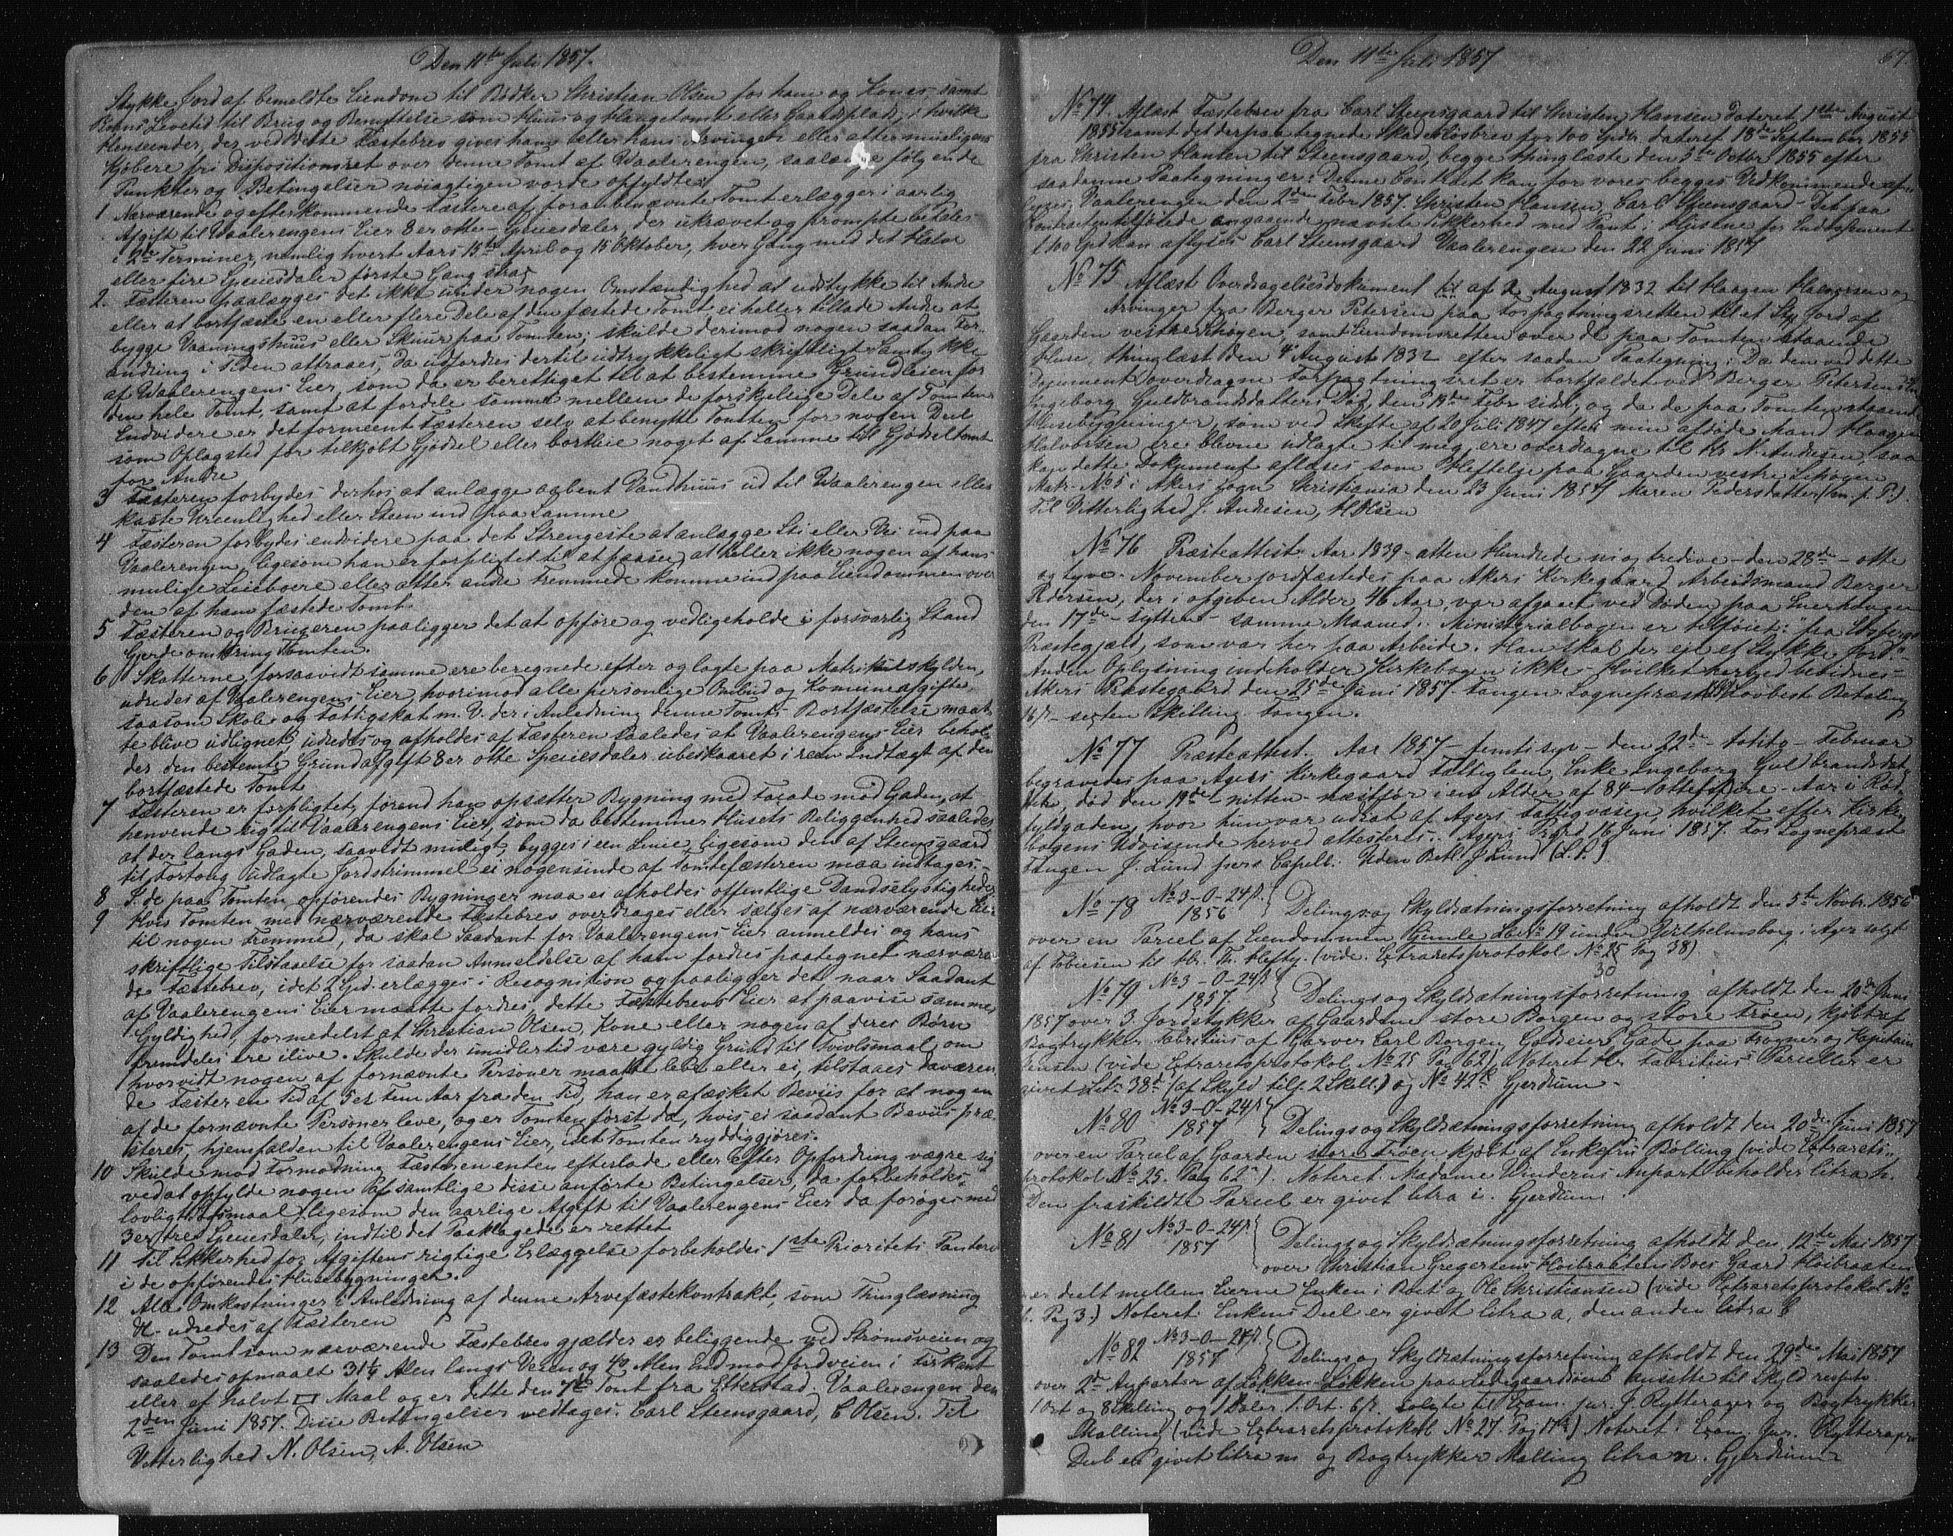 Den 11te Juli 1857.
Stykke Jord af bemeldte Eiendom til Bødker Christian Olsen for ham og Kones samt
Børns Levetid til Brug og Benyttelse som Huus og Haugetomt eller Gaardsplads, i hvilke
Henseender, der ved dette Fæstebrev gives ham eller hans Arvinger eller efter muligens
Kjøbere fri Dispositionsret over denne Tomt af Vaalerengen, saalænge følgende
Punkter og Betingelser nøiagtigen vorde opfyldte:
1 Nærværende og efterkommende Fæstere af foranbenævnte Tomt erlægger i aarlig
Afgift til Vaalerengens Eier 8 er otte Speciesdaler, der ukrævet og prompte betales
i 2de Terminer, nemlig hvert Aars 15de April og 15 Oktober, hver Gang med det Halve
eller fire Speciesdaler første Gang strax
2. Fæsteren paalægges det ikke under nogen Omstændighed at udstykke til Andre
eller at bortfæste en eller flere Dele af den fæstede Tomt ei heller tillade Andre at
bygge Vaaningshuus eller Skuur paa Tomten; skulde derimod nogen saadan For-
andring i Tiden attraaes, da udfordres dertil udtrykkeligt skriftligt Samtykke
af Vaalerengens Eier, som da er berettiget til at bestemme Grundleien for
den hele Tomt, samt at fordele samme mellem de forskjellige Dele af Tomten
Endvidere er det formeent Fæsteren selv at benytte Tomten for nogen Deel
som Oplagsted for tilkjøbt Gjødsel eller bortleie noget af Samme til Gjødseltomt
for Andre
3 Fæsteren forbydes derhos at anlægge aabent Vandhuus ud til Vaalerengen eller
kaste Ureenlighed eller Steen ind paa Samme
4 Fæsteren forbydes endvidere paa det Strengeste at anlægge Sti eller Vei ind paa
Vaalerengen, ligesom han er forpligtet til at passe, at heller ikke nogen af hans
mulige Leieboere eller atter andre Fremmede komme ind paa Eiendommen over
den af ham fæstede Tomt.
5 Fæsteren og Brugeren paaligger det at opføre og vedligeholde i forsvarlig Stand
Gjerde omkring Tomten.
6 Skatterne, forsaavidt samme ere beregnede efter og lagte paa Matrikulskylden
udredes af Vaalerengens Eier, hvorimod alle personlige Ombud og Komuneafgifte
saasom Skole og Fattigskat m. V. der i Anledning denne Tomts Bortfæstelse maat-
te blive udlignet, udredes og afholdes af Fæsteren saaledes at Vaalerengens Eier behol-
der den bestemte Grundafgift 8 er otte Speciesdaler ubeskaaret i reen Indtægt af den
bortfæstede Tomt
7 Fæsteren er forpligtet, førend han opsætter Bygning med Facade mod Gaden, at
henvende sig til Vaalerengens Eier, som da bestemmer Husets Beliggenhed saaledes
at der langs Gaden, saavidt muligt, bygges i een Linie, ligesom den af Steensgaard
til Fortoug udlagte Jordstrimmel ei nogensinde af Tomtefæsteren maa indtages.-
8 I de paa Tomten opførendes Bygninger maa ei afholdes offentlige Dandselystigheder
9 Hvis Tomten med nærværende Fæstebrev overdrages eller sælges af nærværende Eier
til nogen Fremmed, da skal Saadant for Vaalerengens Eier anmeldes og hans
skriftlige Tilstaaelse for saadan Anmeldelse af ham fordres paategnet nærværen-
de Fæstebrev, idet 2 Spd. erlægges i Recognition og paaligger det naar Saadant
af Vaalerengens Eier maatte fordres, dette Fæstebrevs Eier at paavise sammes
Gyldighed, formedelst at Christian Olsen, Kone eller nogen af deres Børn
fremdeles ere ilive. Skulde der imidlertid være gyldig Grund til Tvivlsmaal, om
hvorvidt nogen af fornævnte Personer maatte leve eller ei, tilstaaes daværen-
de Fæsteren Tid af 5 er fem Aar fra den Tid, han er afæsket Beviis for at nogen
af de fornævnte Personer leve, og er Tomten først da, hvis ei saadant Beviis præ-
steres, hjemfalden til Vaalerengens Eier, idet Tomten ryddiggjøres.
10 Skulde mod Formodning Fæsteren enten efterlade eller efter Opfordring vægre sig
ved at opfylde nogen af samtlige disse anførte Betingelser, da forbeholdes
lovligt Søgsmaal, ligesom den aarlige Afgift til Vaalerengens Eier da forøges med
3 er tre Speciesdaler, indtil det Paaklagede er rettet
11 Til Sikkerhed for Afgiftens rigtige Erlæggelse forbeholdes 1ste Prioritets Panteret
i de opførendes Huusbygninger.
12 Alle Omkostninger i Anledning af denne Arvefæstekontrakt, som Thinglæsning
&- udredes af Fæsteren
13 Den Tomt som nærværende Fæstebrev gjælder er beliggende ved Strømsveien og
saaledes opmaalt 31½ Alen langs Veien og 40 Alen Ind mod Jordveien i Firkant
eller et halvt □ Maal og er dette den 7de Tomt fra Etterstad. Vaalerengen den
2den Juni 1857. Disse Betingelser vedtages. Carl Steensgaard, C Olsen. Til
Vitterlighed N. Olsen, A. Olsen
Den 11te Juli 1857
67.
No 74. Aflæst Fæstebrev fra Carl Steensgaard til Christen Hansen dateret 1ste August
1855 samt det derpaa tegnede Skadesløsbrev for 100 Spdr. dateret 18de September 1855
fra Christen Hansen til Steensgaard, begge thinglæste den 5te Octbr. 1855 efter
saadanne Paategninger: Denne Contract kan for vores begges Vedkommende aflæ-
Vaalerengen den 2den Febr 1857. Christen Hansen, Carl Steensgaard - Det paa
Contracten tilførte angaaende nævnte Sikkerhed med Pant i Huset for
100 Spd kan aflyses Carl Steensgaard Vaalerengen den 22 Juni 1857
No 75 Aflæst Overdragelsesdokument af 2 August 1832 til Haagen Halvorsen og
Arvinger fra Berger Petersen paa Forpagtningsretten til et Stk Jord af
Gaarden vestre Ihøyen, samt Eiendomsretten over de paa Tomten staaende
Huse, thinglæst den 4de August 1832 efter saadan Paategning: Da den ved dette
Document overdragne Forpagtningsret er bortfalden ved Berger Petersens
Ingeborg Guldbrandsdatters Død, den 19de Febr sidst, og da de paa Tomten staaende
Husebygninger, som ved Skifte af 20 Juli 1847 efter min afdøde Mand Haagen
Halvorsen ere blevne udlagte til mig, ere overdragne til Hr N. Andresen, saa
kan dette Dokument aflæses som Heftelse paa Gaarden vestre Ihøyen
Matr. No 1 i Akers Sogn Christiania den 23 Juni 1857 Maren Pedersdatter (m. p. P.)
Til Vitterlighed J. Andresen, H Olsen
No 76 Præsteattest. Aar 1839 - atten Hundrede ni og tredive - den 28de - otte
og tyve - November jordfæstedes paa Akers Kirkegaard Arbeidsmand Berger
Pedersen, der i opgiven Alder 46 Aar, var afgaaet ved Døden paa Enerhougen
den 17de - sytten - samme Maaned. Ministerialbogen er tilføiet: "fra
Præstegjæld, som var her paa Arbeide. Han skal der eje et Stykke Jord"
Anden Oplysning indeholder Kirkebogen ikke - Hvilket herved bevidnes -
Akers Præstegaard den 25de Juni 1857. Tangen Sognepræst. Lovbest. Betaling
16ß - sexten Skilling Tangen.
No 77 Præsteattest. Aar 1857 - femti syv - den 22de - toti to - Februar
begravedes paa Agers Kirkegaard Fattiglem, Enke Ingeborg Gulbrandsdat-
ter, død den 19de - nitten - næstfør i en Alder af 84 - otte ti fire - Aar i Rød-
fyldgaden, hvor hun var udsat af Agers Fattigvæsen, hvilket efter Kirke-
bogens Udvisende herved attesteres. Agers Prgrd. 16 Juni 1857. For Sognepræst
Tangen J. Lund pers Capell. Uden Betl. J Lund (L. S.)
No 78 No 3-0-24ß 1856 } Delings og Skyldsætningsforretning afholdt den 5te Novbr. 1856
over en Parcel af Eiendommen Gjemle Løkno 19 under Wilhelmsborg i Ager solgt
af Tobiesen til Hr. Th. Heftÿ. (vide. Extraretsprotokol No 25 Pag 38)
30
No 79 No 3-0-24ß 1857. } Delings og Skyldsætningsforretning afholdt den 20de Juni
1857 over 3 Jordstykker af Gaardene store Borgen og store Frøen, kjøbt af
Bogtrykker Fabritius af Garver Carl Borgen, Godseier Gade paa Frogner og Kaptain
Jensen (vide Extraretsprotokol No 25 Pag 62) Noteret Hr. Fabritius' Parceller er
givet Litr. 38d (af Skyld tilf 2 Skill.) og No 42b Gjerdrum.-
No 80 No 3-0-24ß 1857 } Delings og Skyldsætningsforretning afholdt den 20de Juni 1857
over en Parcel af Gaarden store Frøen kjøbt af Enkefru Bølling (vide Extrarets-
protokol No 25. Pag 62). Noteret. Madame Winderens Anpart beholder litra h.
Den fraskildte Parcel er givet litra i. Gjerdrum.
No 81 No 3-0-24ß 1857 } Delings og Skyldsætningsforretning afholdt den 12te Mai 1857
over Christian Gregersens Høibraatens Boes Gaard Høibraaten
er deelt mellem Eierne Enken i Boet og Ole Christiansen (vide Extraretsprotokol No
Pag 3.) Noteret Enkens Deel er givet litra a, den anden litra b
No 82 No 3-0-24ß 1857 } Delings og Skyldsætningsforretning afholdt den 29de Mai 1857
over 2de Anparter af Løkken paa ansatte til Skyld respto
1 Ort og 8 Skilling og 1 Daler 1 Ort 6ß. solgte til Exam. jur. J. Rytterager og Bogtrykker
Malling (vide Extraretsprotokol No 27. Pag 17) Noteret: Exam. jur. Rytterager
Deel er givet litra m og Bogtrykker Malling litra n. Gjerdrum